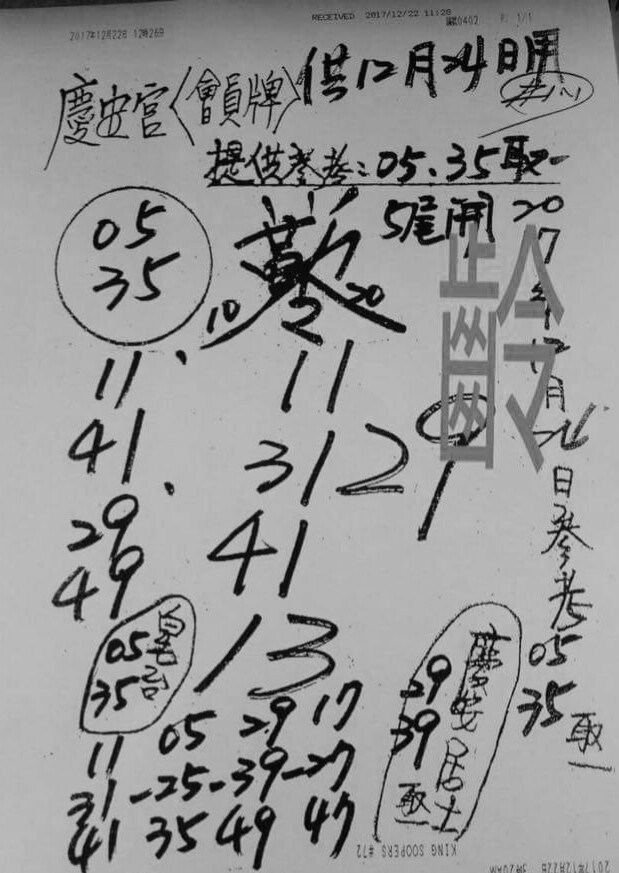 RECEIVED 2017/12/22 11:28
0402 P. 1/1
2017年12月22日 12時26分
慶安宮〈會員牌〉供12月24日用
提供參考:05、35取一
5尾開
05
35
10 20
11
41
29
49
11
31 29
41
13
05
35
11 05 29 17
31-25-39-27
41 35 49 47
慶安居士
29
39
取一
2017年12月24日參考
05
35
取一
KING SOOPERS #72
2017年12月22日